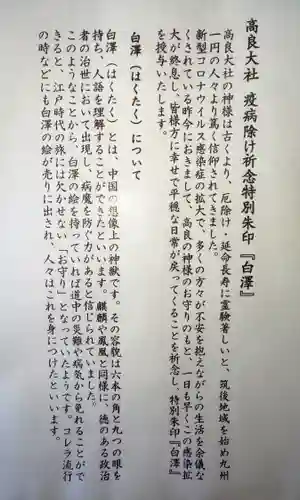 高良大社 疫病除け祈念特別朱印『白澤』
高良大社の神様は古くより、厄除け・延命長寿に霊験著しいと、筑後地域を始め九州
一円の人々より篤く信仰されてきました。
新型コロナウイルス感染症の拡大で、多くの方々が不安を抱えながらの生活を余儀な
くされている昨今におきまして、高良の神様のお守りのもと、一日も早くこの感染拡
大が終息し、皆様方に幸せで平穏な日常が戻ってくることを祈念し、特別朱印『白澤』
を授与いたします。
白澤(はくたく)について
白澤(はくたく)とは、中国の想像上の神獣です。その容貌は六本の角と九つの眼を
持ち、人語を理解することができたといいます。麒麟や鳳凰と同様に、徳のある政治
者の治世において出現し、病魔を防ぐ力があると信じられていました。
このようなことから、白澤の絵を持っていれば道中の災難や病気から免れることがで
きると、江戸時代の旅には欠かせない「お守り」となっていたようです。コレラ流行
の時などにも白澤の絵が売りに出され、人々はこれを身につけたといいます。